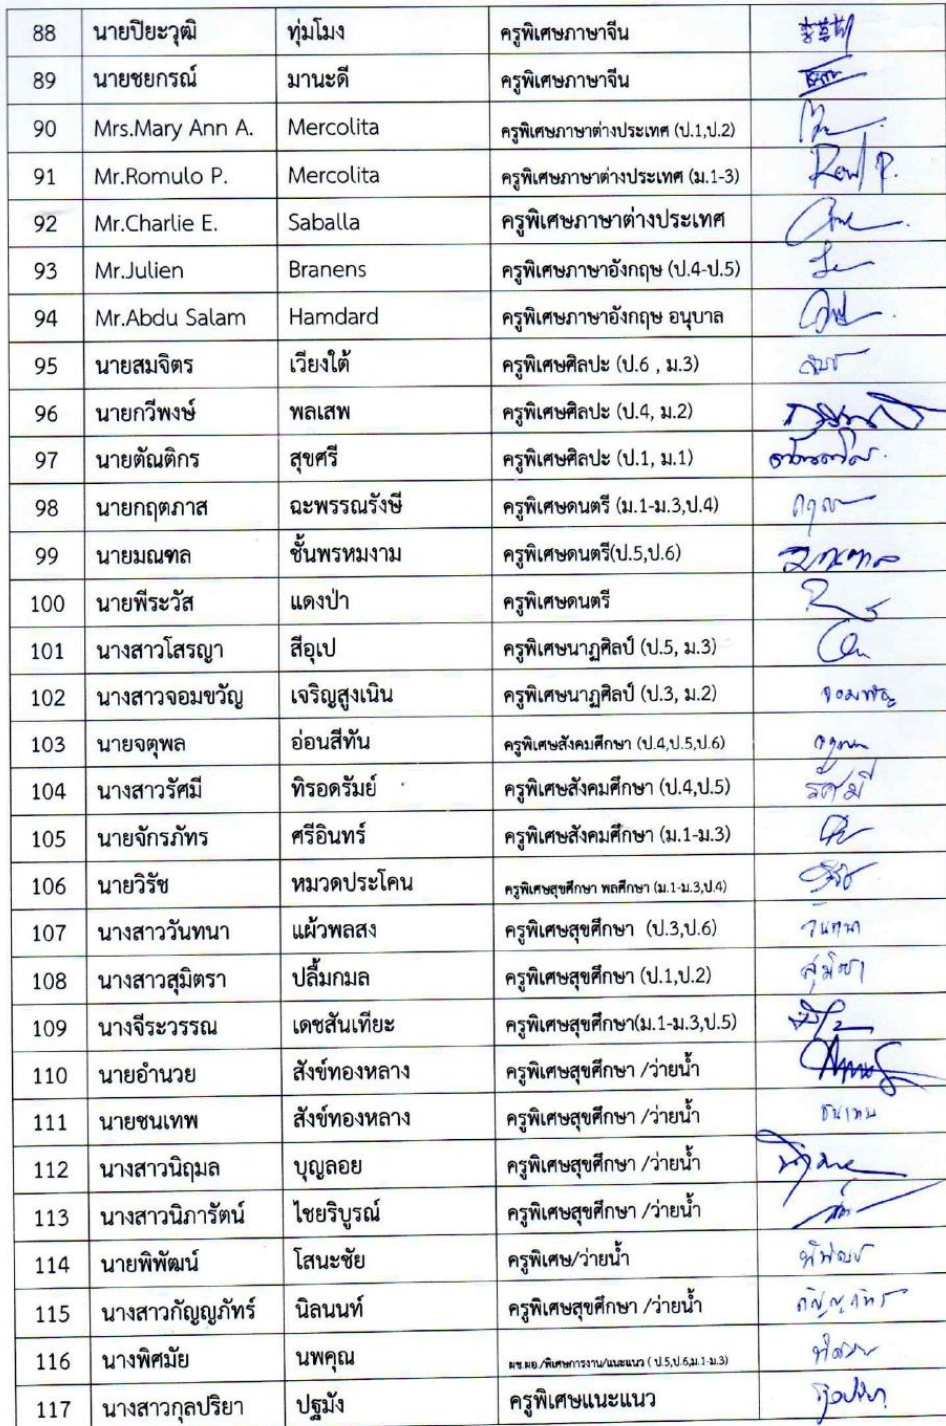 88 นายปิยะวุฒิ ทุ่มโมง ครูพิเศษภาษาจีน
89 นายชยกรณ์ มานะดี ครูพิเศษภาษาจีน
90 Mrs.Mary Ann A. Mercolita ครูพิเศษภาษาต่างประเทศ (ป.1,ป.2)
91 Mr.Romulo P. Mercolita ครูพิเศษภาษาต่างประเทศ (ม.1-3)
92 Mr.Charlie E. Saballa ครูพิเศษภาษาต่างประเทศ
93 Mr.Julien Branens ครูพิเศษภาษาอังกฤษ (ป.4-ป.5)
94 Mr.Abdu Salam Hamdard ครูพิเศษภาษาอังกฤษ อนุบาล
95 นายสมจิตร เวียงใต้ ครูพิเศษศิลปะ (ป.6 , ม.3)
96 นายกวีพงษ์ พลเสพ ครูพิเศษศิลปะ (ป.4, ม.2)
97 นายตัณติกร สุขศรี ครูพิเศษศิลปะ (ป.1, ม.1)
98 นายกฤตภาส ฉะพรรณรังษี ครูพิเศษดนตรี (ม.1-ม.3,ป.4)
99 นายมณฑล ชั้นพรหมงาม ครูพิเศษดนตรี(ป.5,ป.6)
100 นายพีระวัส แดงป่า ครูพิเศษดนตรี
101 นางสาวโสรญา สีอุเป ครูพิเศษนาฏศิลป์ (ป.5, ม.3)
102 นางสาวจอมขวัญ เจริญสูงเนิน ครูพิเศษนาฏศิลป์ (ป.3, ม.2) จอมขวัญ
103 นายจตุพล อ่อนสีทัน ครูพิเศษสังคมศึกษา (ป.4,ป.5,ป.6)
104 นางสาวรัศมี ทิรอดรัมย์ ครูพิเศษสังคมศึกษา (ป.4,ป.5) รัศมี
105 นายจักรภัทร ศรีอินทร์ ครูพิเศษสังคมศึกษา (ม.1-ม.3)
106 นายวิรัช หมวดประโคน ครูพิเศษสุขศึกษา พลศึกษา (ม.1-ม.3,ป.4)
107 นางสาววันทนา แผ้วพลสง ครูพิเศษสุขศึกษา (ป.3,ป.6) วันทนา
108 นางสาวสุมิตรา ปลื้มกมล ครูพิเศษสุขศึกษา (ป.1,ป.2) สุมิตรา
109 นางจีระวรรณ เดชสันเทียะ ครูพิเศษสุขศึกษา(ม.1-ม.3,ป.5)
110 นายอำนวย สังข์ทองหลาง ครูพิเศษสุขศึกษา /ว่ายน้ำ
111 นายชนเทพ สังข์ทองหลาง ครูพิเศษสุขศึกษา /ว่ายน้ำ ชนเทพ
112 นางสาวนิฤมล บุญลอย ครูพิเศษสุขศึกษา /ว่ายน้ำ
113 นางสาวนิภารัตน์ ไชยริบูรณ์ ครูพิเศษสุขศึกษา /ว่ายน้ำ
114 นายพิพัฒน์ โสนะชัย ครูพิเศษ/ว่ายน้ำ พิพัฒน์
115 นางสาวกัญญภัทร์ นิลนนท์ ครูพิเศษสุขศึกษา /ว่ายน้ำ กัญญภัทร์
116 นางพิศมัย นพคุณ ผช.ผอ./พิเศษการงาน/แนะแนว ( ป.5,ป.6,ม.1-ม.3)
117 นางสาวกุลปริยา ปฐมัง ครูพิเศษแนะแนว